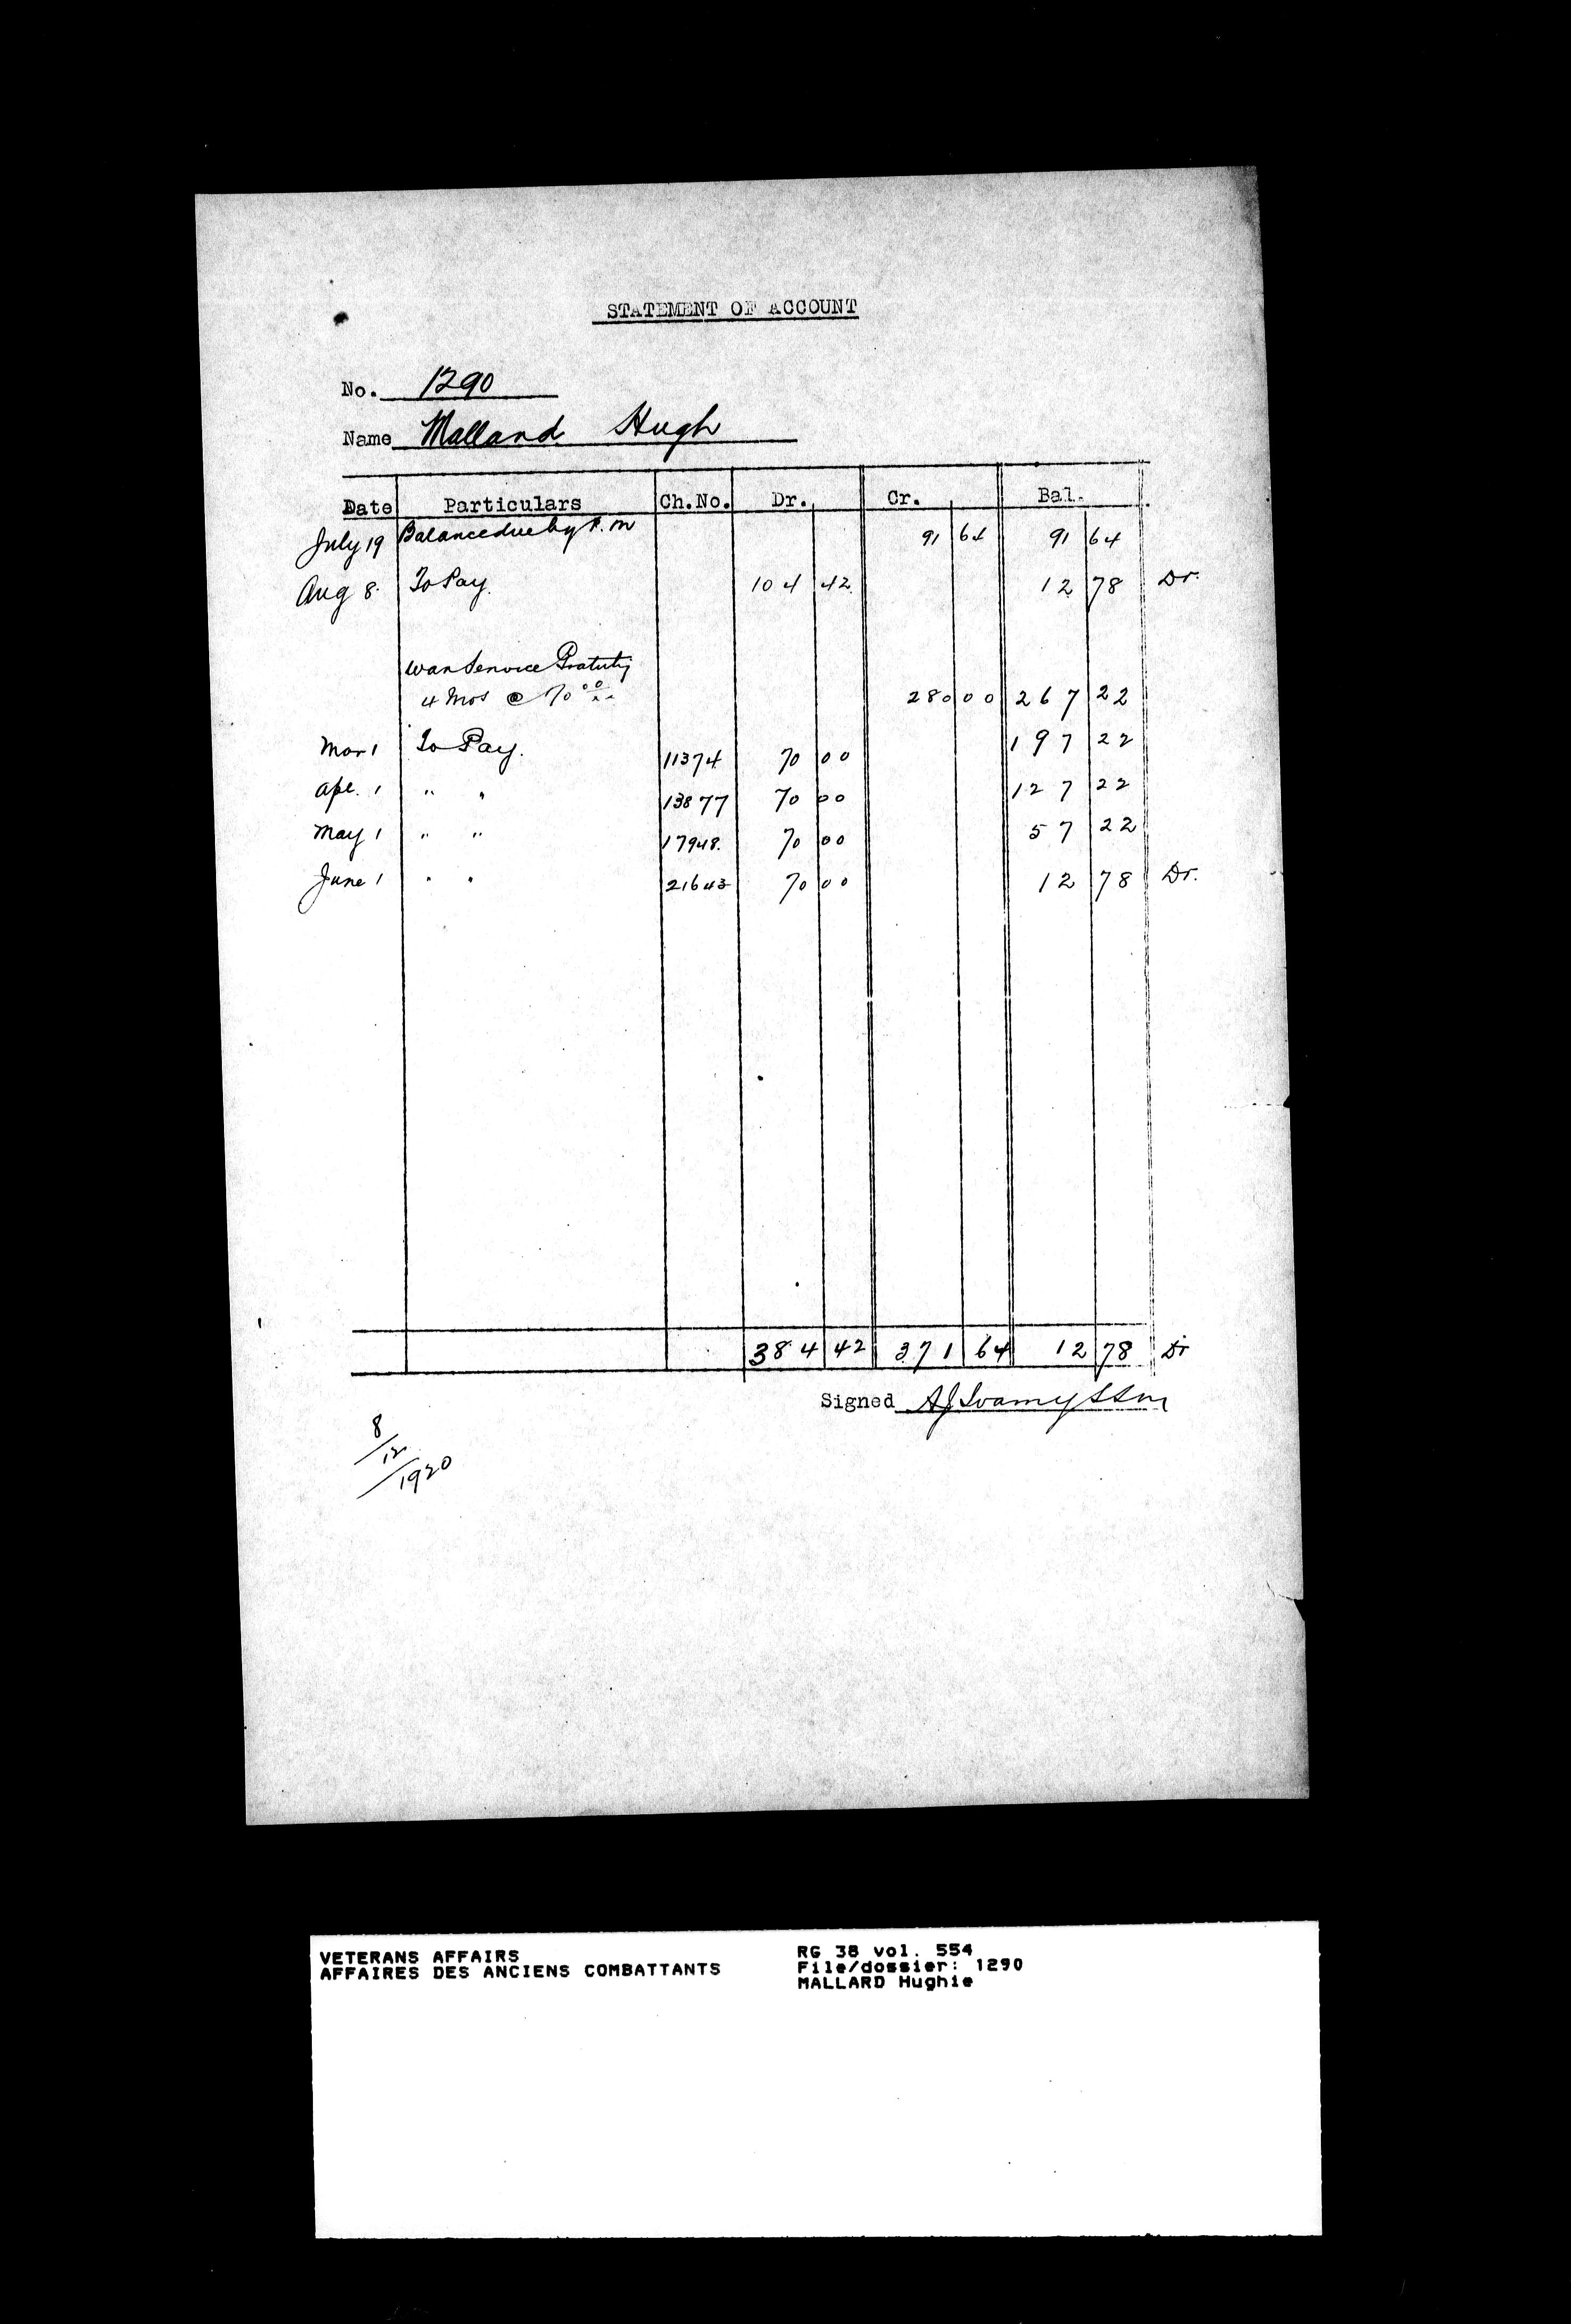 STATEMENT OF ACCOUNT
No. 1290
Name Mallard Hugh
Date Particulars Ch.No. Dr. Cr. Bal.
July 19 Balance due by P.M 91 64 91 64
Aug 8. To Pay. 104 42 12 78 Dr.
War Service Gratuity
4 Mos @ 70 00 280 00 267 22
Mar 1 To Pay. 11374 70 00 197 22
Apl. 1 " " 13877 70 00 127 22
May 1 " " 17948. 70 00 57 22
June 1 " " 21643 70 00 12 78 Dr.
384 42 371 64 12 78 Dr
Signed
8/12/1920
VETERANS AFFAIRS RG 38 vol. 554
AFFAIRES DES ANCIENS COMBATTANTS File/dossier: 1290
MALLARD Hughie